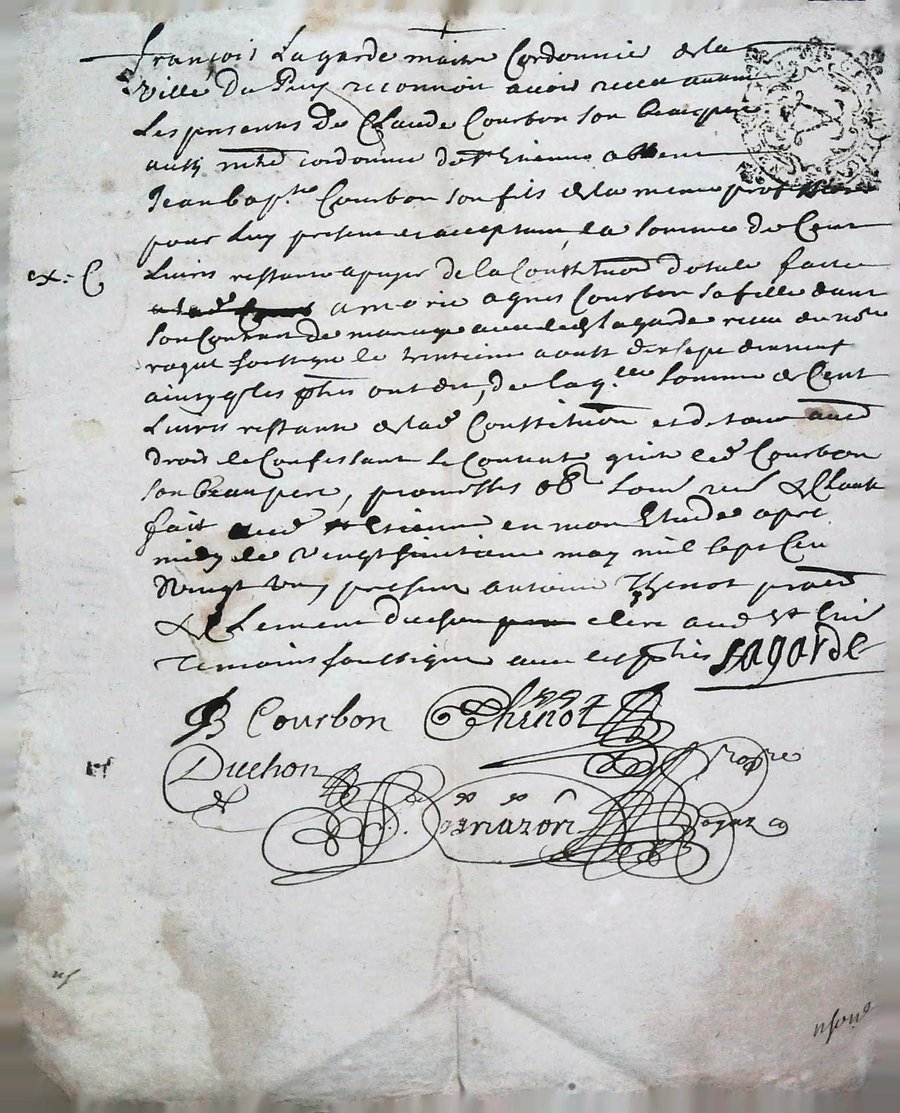 françois Lagarde maitre Cordonnie de la
Ville Du Puy reconnoit avoir receu avant
Les presentes de Claude Courbon son beaupere
aussy mtre cordonnie de st Etienne absent
Jean bap.te Courbon son fils de la meme profession
pour Luy present et acceptant la somme de Cent
ex: C
Livres restante a payer de la Constitution dotale faitte
a marie agnes Courbon sa fille dans
son Contrat de mariage avec led Lagarde receu du nore
soussigné le trentieme aoust dix sept dixneuf
ainsy q les pties ont dit, de laq.lle somme de Cent
Livres restante de lad Constitution et de tous autre
droit le Confessant Le Content quitte led Courbon
son beaupere, promettes obl
fait aud st Etienne en mon Etude apres
midy le vingt huitieme may mil sept Cen
Vingt Un, present antoine Thenot
et Clement Duchon clerc aud st Etie
Temoins soussignes avec les pties Lagarde
JB Courbon Thenot
Duchon